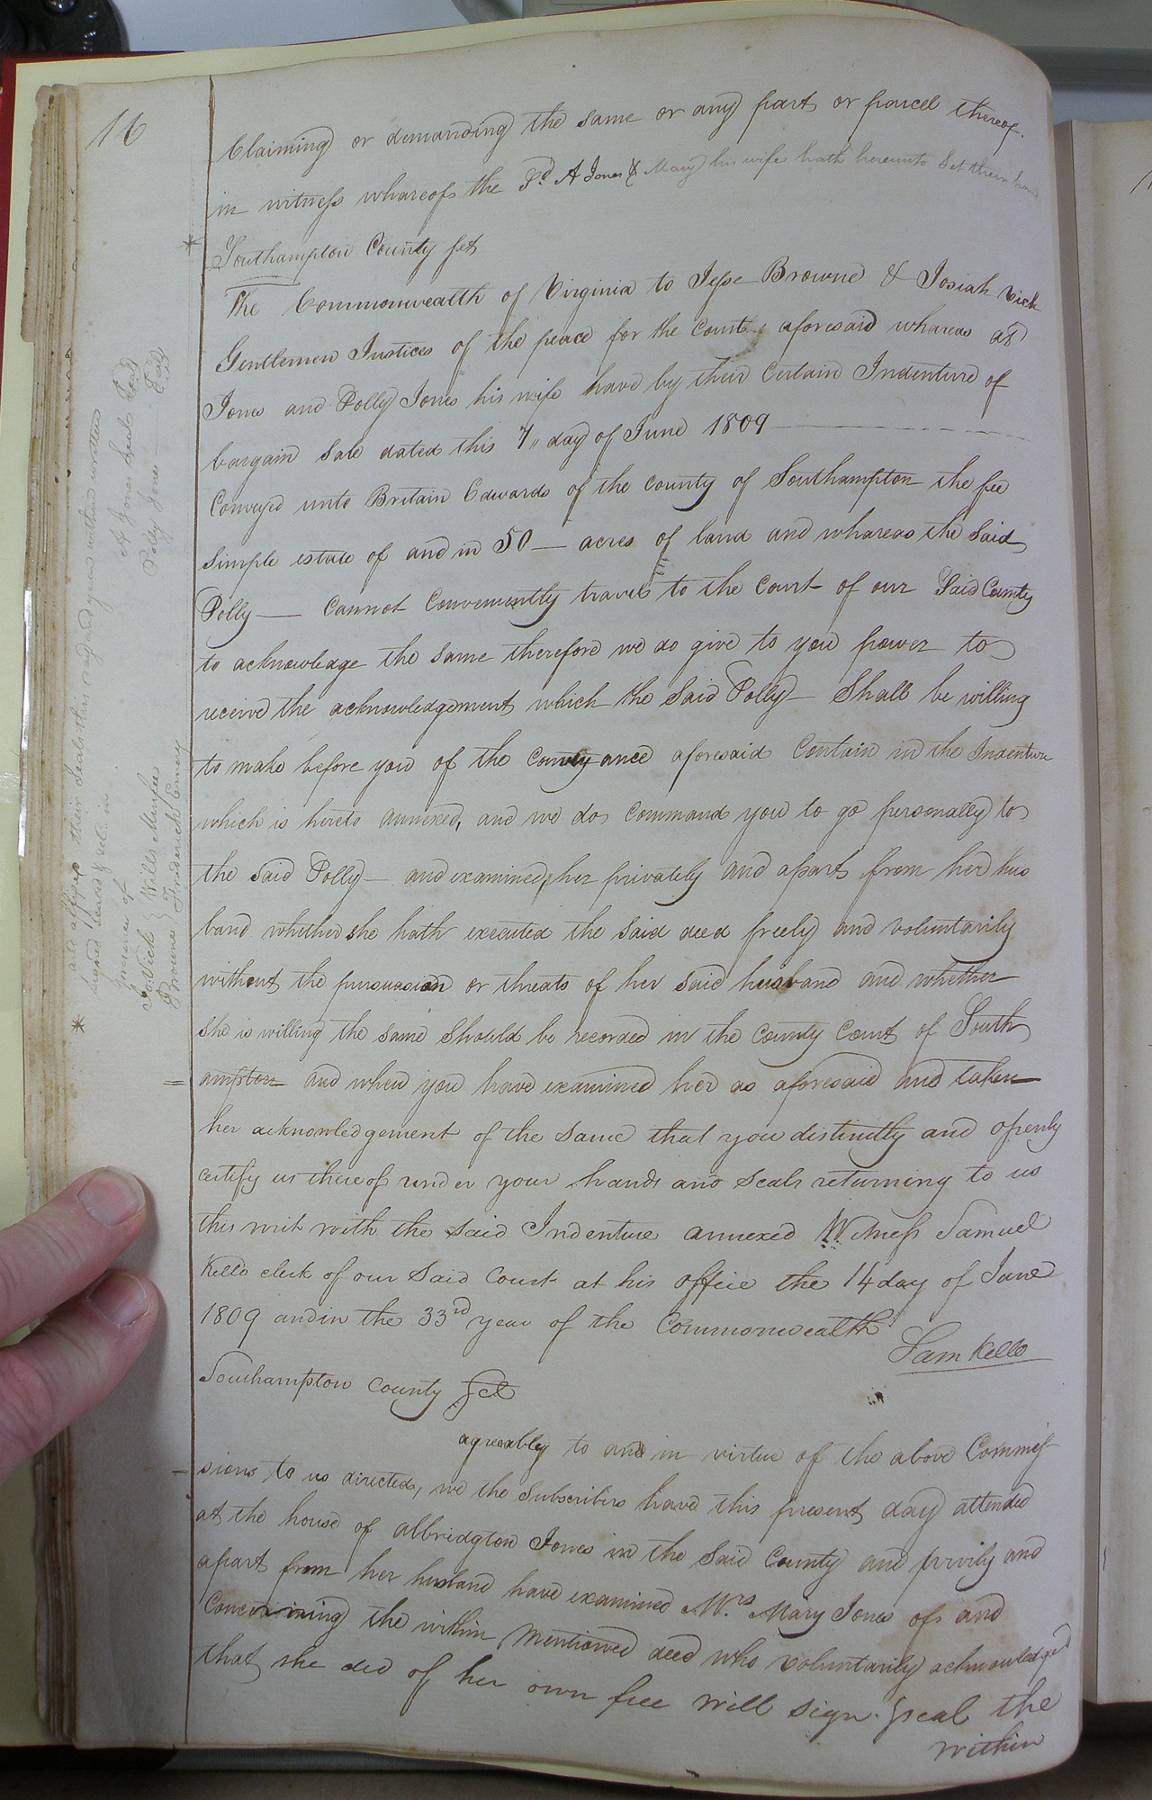 16
Claiming or demanding the same or any part or parcel thereof.
in witness whareofs the Sd. A Jones & Mary his wife hath hereunto Set them hand
* Southampton County sct
The Commonwealth of Virginia to Jesse Browne & Josiah Vick
Gentlemen Justices of the peace for the Court aforesaid whareas A
Jones and Polly Jones his wife have by their Certain Indenture of
bargain Sale dated this 7" day of June 1809
Conveyd unto Britain Edwards of the county of Southampton the fee
Simple estate of and in 50 — acres of land and whareas the Said
Polly — Cannot Conveniently travel to the Court of our Said County
to acknowledge the same therefore we do give to you power to
receive the acknowledgement which the Said Polly — Shall be willing
to make before you of the Conveyance aforesaid Contain in the Indenture
which is hereto annexed, and we do Command you to go personally to
the said Polly — and examined her privately and apart from her hus
band whether she hath executed the said deed freely and voluntarily
without the pursuasion or threats of her said husband and whether
she is willing the same should be recorded in the County Court of South
= ampton and when you have examined her as aforesaid and taken
her acknowledgement of the same that you distinctly and openly
certify us thereof under your hands and Seals returning to us
this writ with the said Indenture annexed Witness Samuel
Kello clerk of our Said Court at his office the 14 day of June
1809 and in the 33rd year of the Commonwealth
Sam Kello
Southampton County Sct
agreeably to and in virtue of the above Commis-
- sions to us directed, we the Subscribers have this present day attended
at the house of albridgton Jones in the Said County and privily and
apart from her husband have examined Mrs. Mary Jones ofs and
Concerning the within Mentioned deed who voluntarily acknowledged
that she did of her own free will sign. Seal the
within
* and affixed their Seals the day and year within written
signed Sealed & del. in
presence of
Jo. Vick } Wills Murfee
Browne } Frederick
A Jones Seal
Polly Jones — Seal